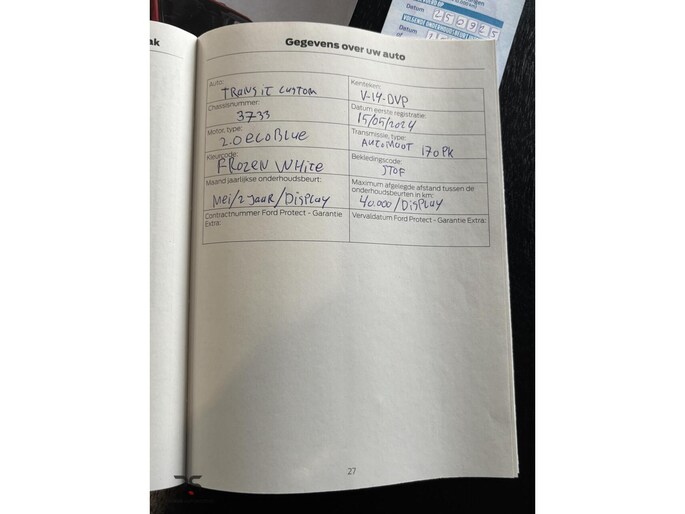 ak
Gegevens over uw auto
Auto:
TRANSIT CUSTOM
Kenteken:
V-14-DVP
Chassisnummer:
3733
Datum eerste registratie:
15/05/2024
Motor, type:
2.0 ECOBLUE
Transmissie, type:
AUTOMAAT 170 PK
Kleurcode:
FROZEN WHITE
Bekledingscode:
STOF
Maand jaarlijkse onderhoudsbeurt:
MEI/2 JAAR/DISPLAY
Maximum afgelegde afstand tussen de
onderhoudsbeurten in km:
40.000/DISPLAY
Contractnummer Ford Protect - Garantie
Extra:
Vervaldatum Ford Protect - Garantie
Extra:
27
Datum
Datum
of